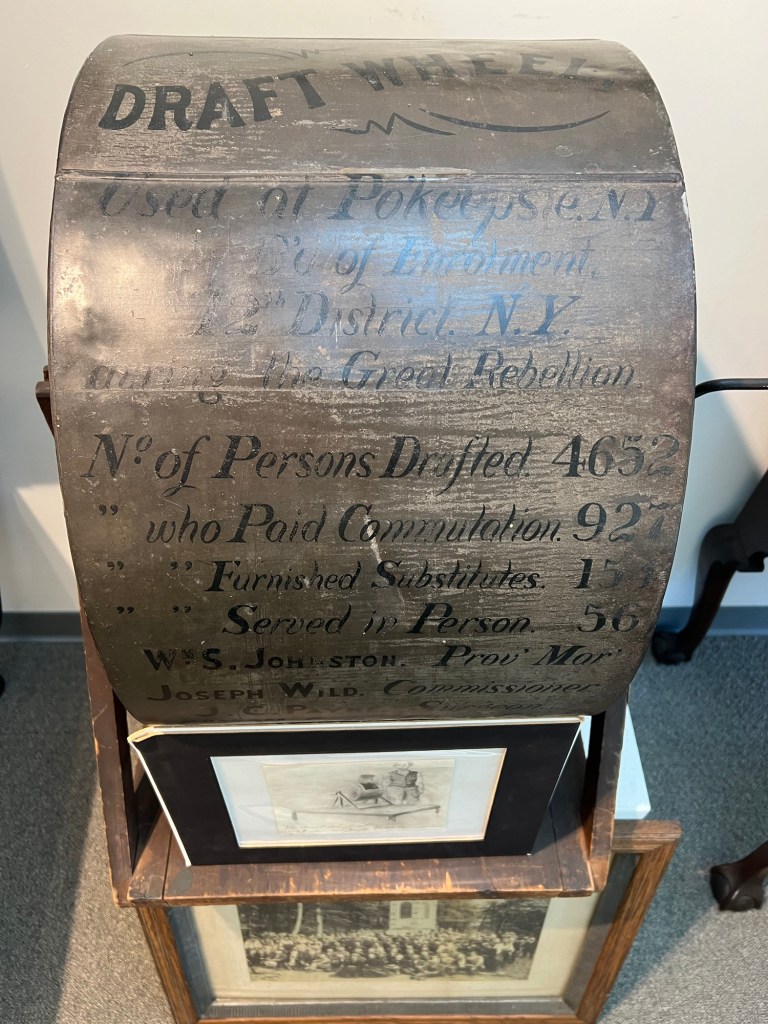 DRAFT WHEEL.
Used at Pokeepsie. N.Y
B'd of Enrolment,
12th District. N.Y.
during the Great Rebellion.
No. of Persons Drafted. 4652
" who Paid Commutation. 927
" " Furnished Substitutes.
" " Served in Person. 56
Wm S. Johnston. Prov' Mar'
Joseph Wild. Commissioner
Surgeon